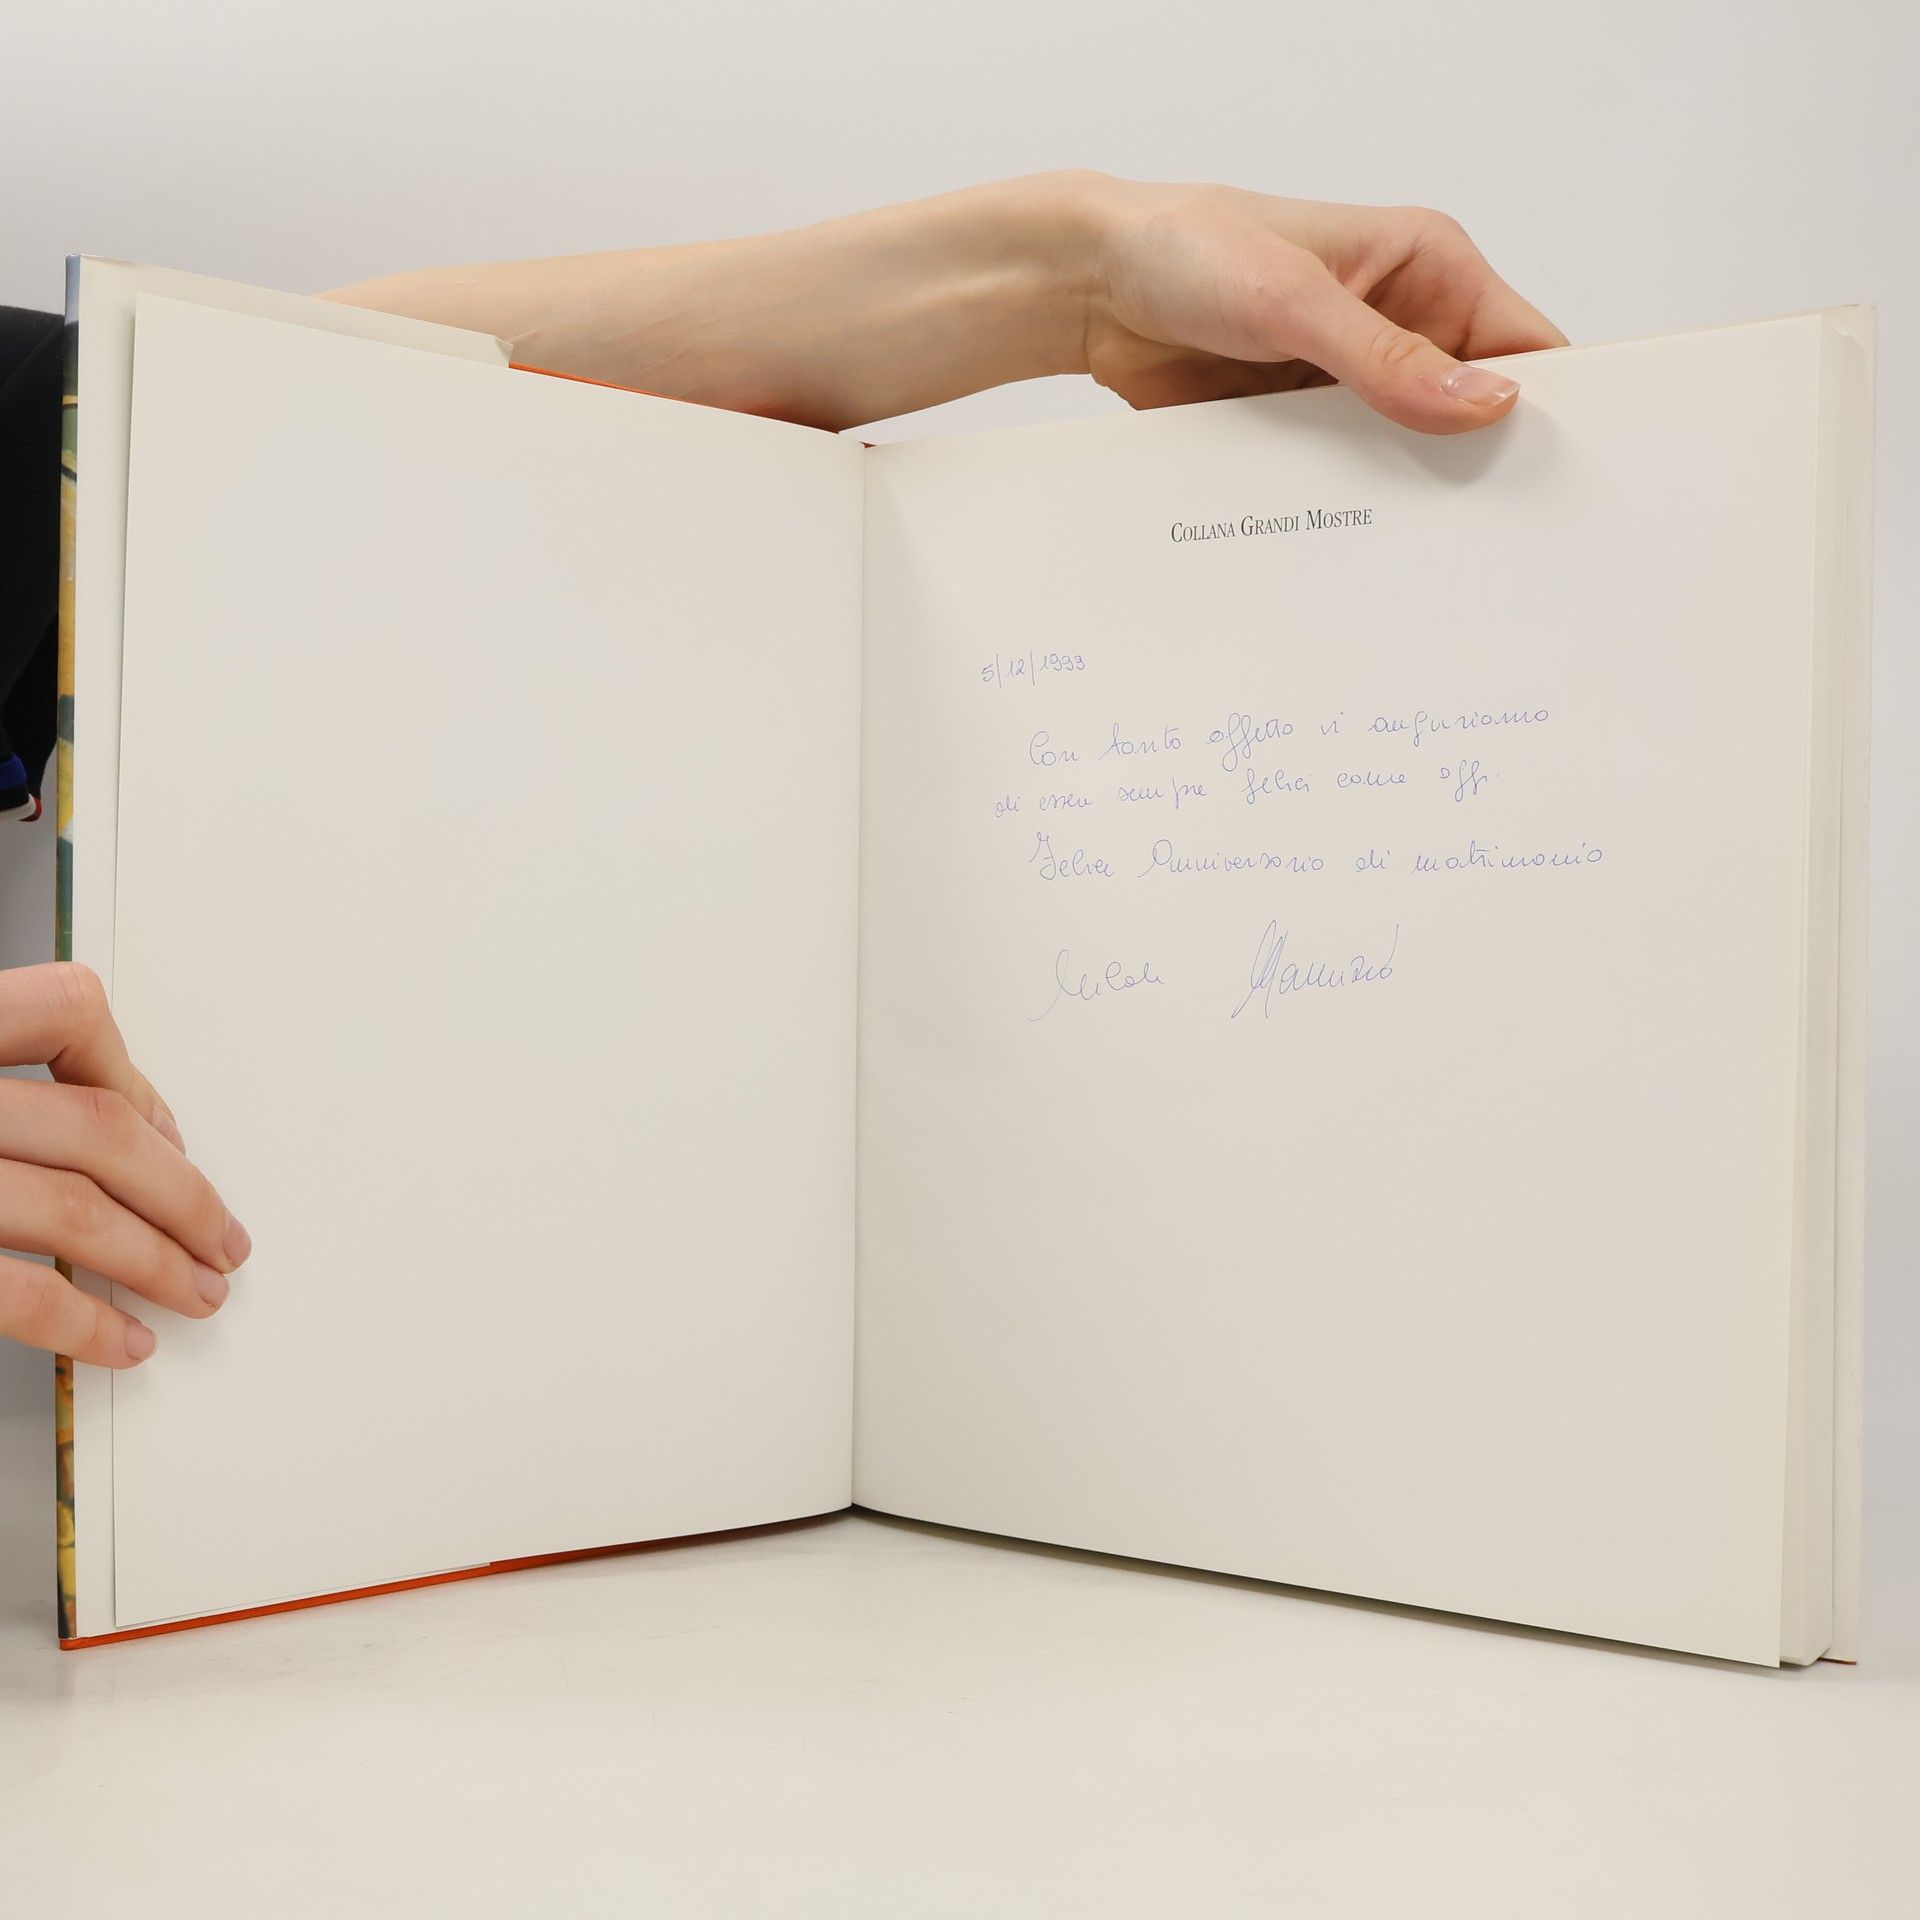 COLLANA GRANDI MOSTRE
5/12/1993
Con tanto affetto vi auguriamo
di esser sempre felici come oggi.
Felice Anniversario di matrimonio
Maurizio